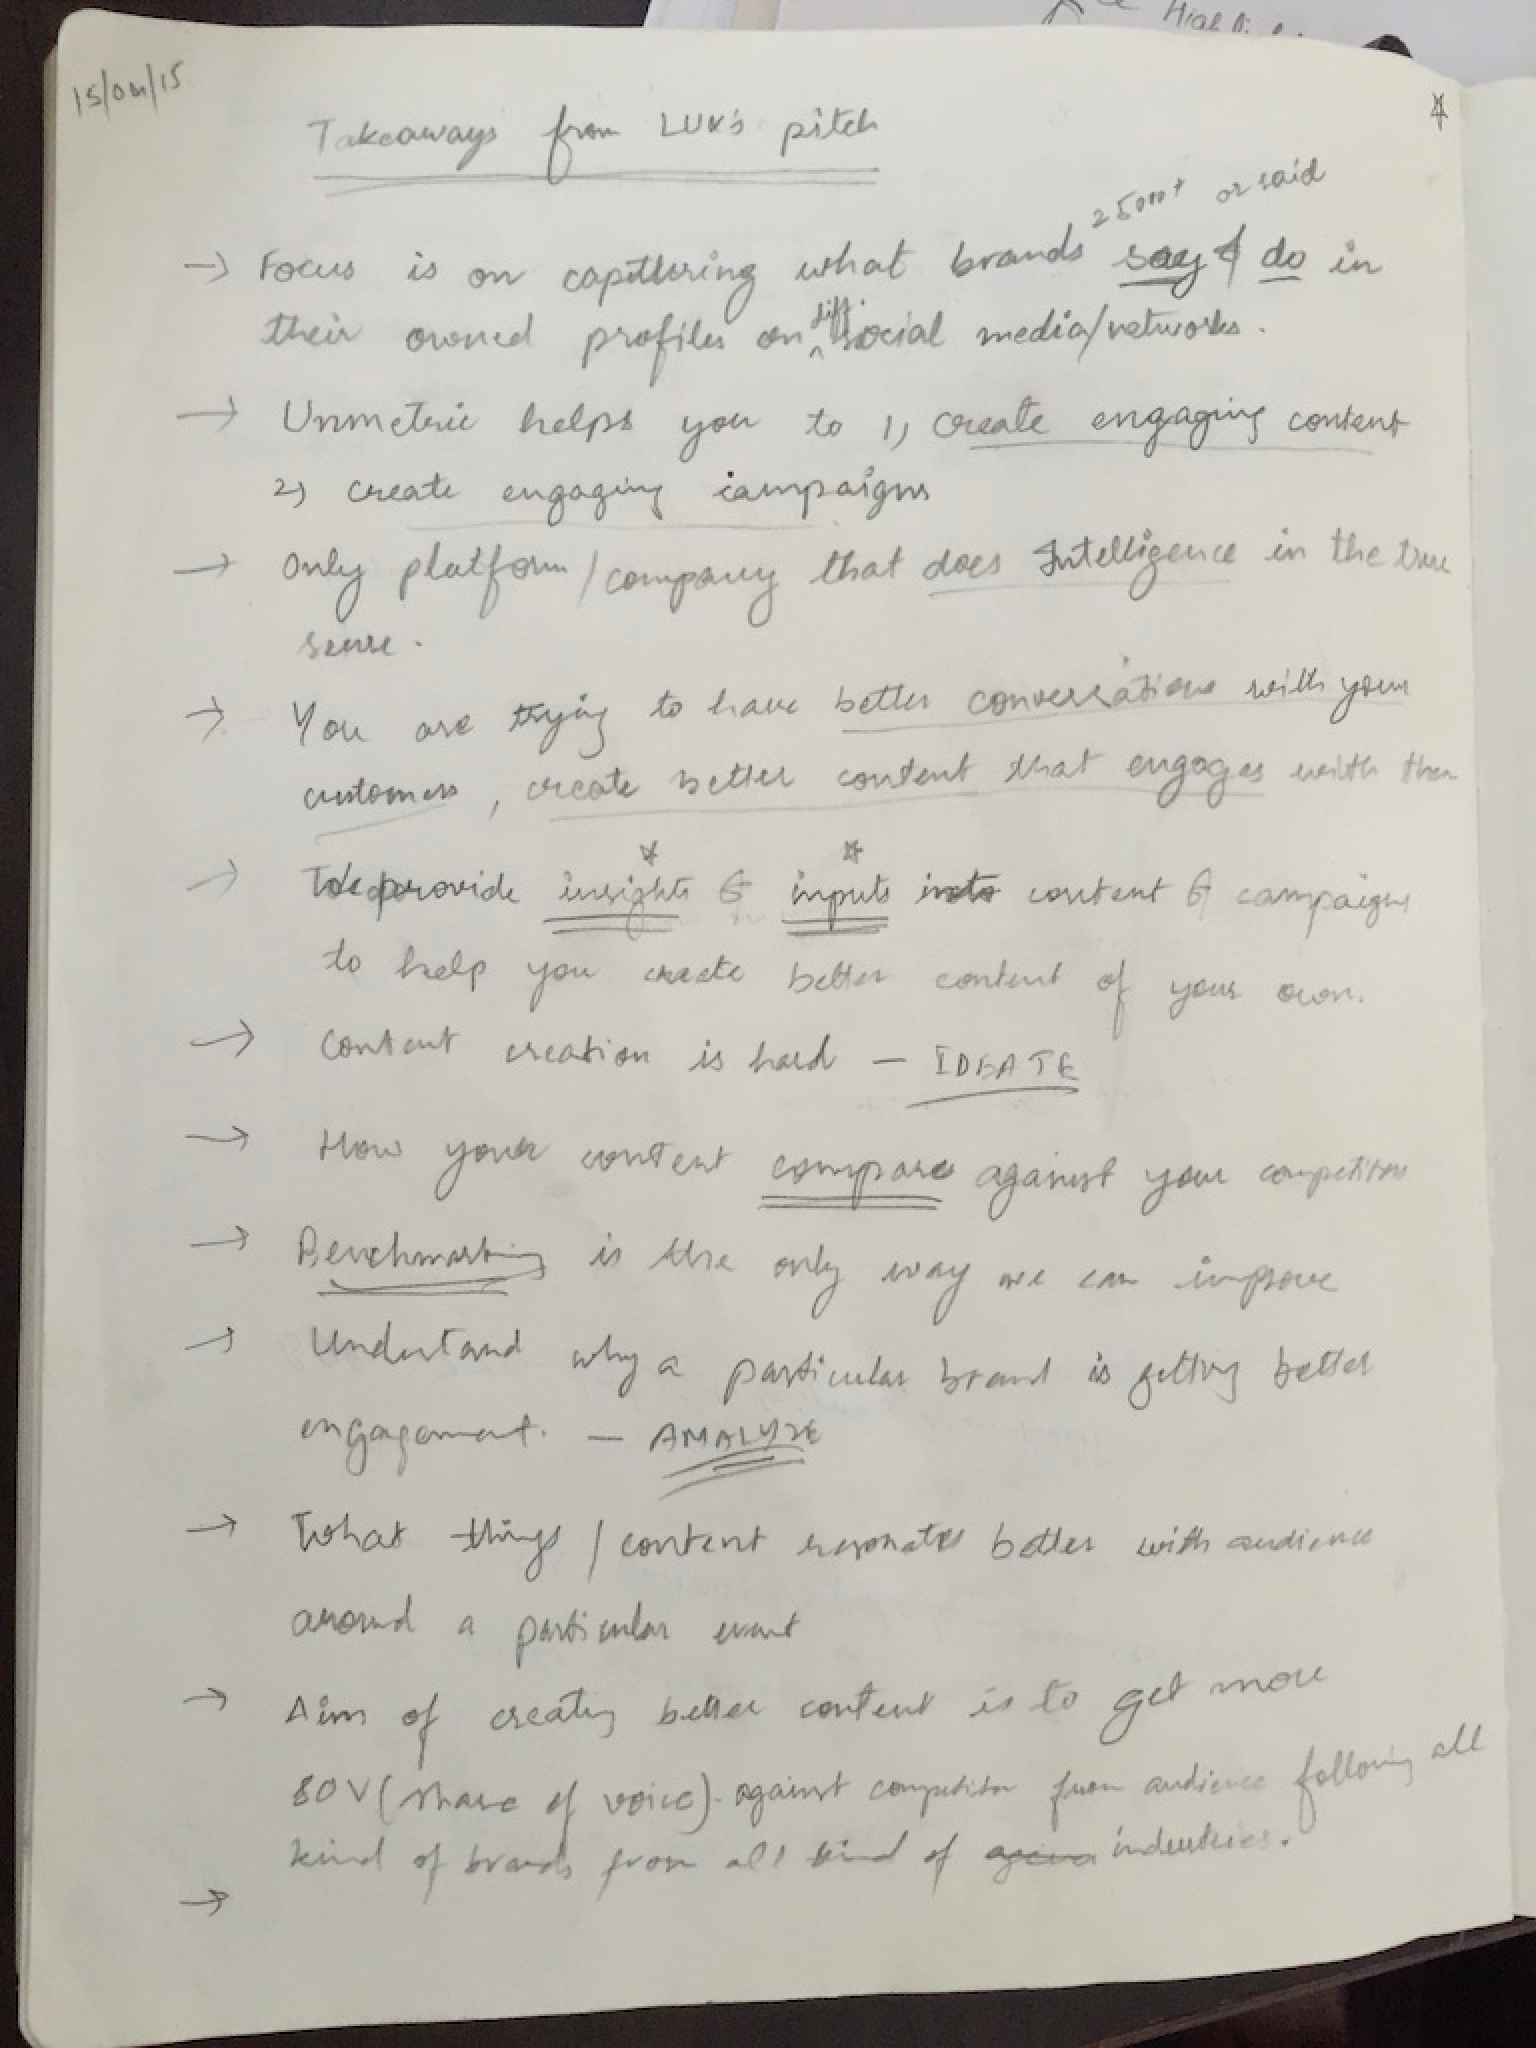 15/04/15
Takeaways from LUX's pitch
25000+ or said
→ Focus is on capturing what brands say & do in
their owned profiles on diff. social media/networks.
→ Unmetric helps you to 1) create engaging content
2) create engaging campaigns
→ Only platform/company that does Intelligence in the true
sense.
→ You are trying to have better conversations with your
customers, create better content that engages with them
→ To provide insights & inputs into content & campaigns
to help you create better content of your own.
→ Content creation is hard – IDEATE
→ How your content compare against your competitors
→ Benchmarking is the only way we can improve
→ Understand why a particular brand is getting better
engagement. – ANALYZE
→ What things / content resonates better with audience
around a particular event
→ Aim of creating better content is to get more
SOV (share of voice). against competitor from audience following all
kind of brands from all kind of industries.
→